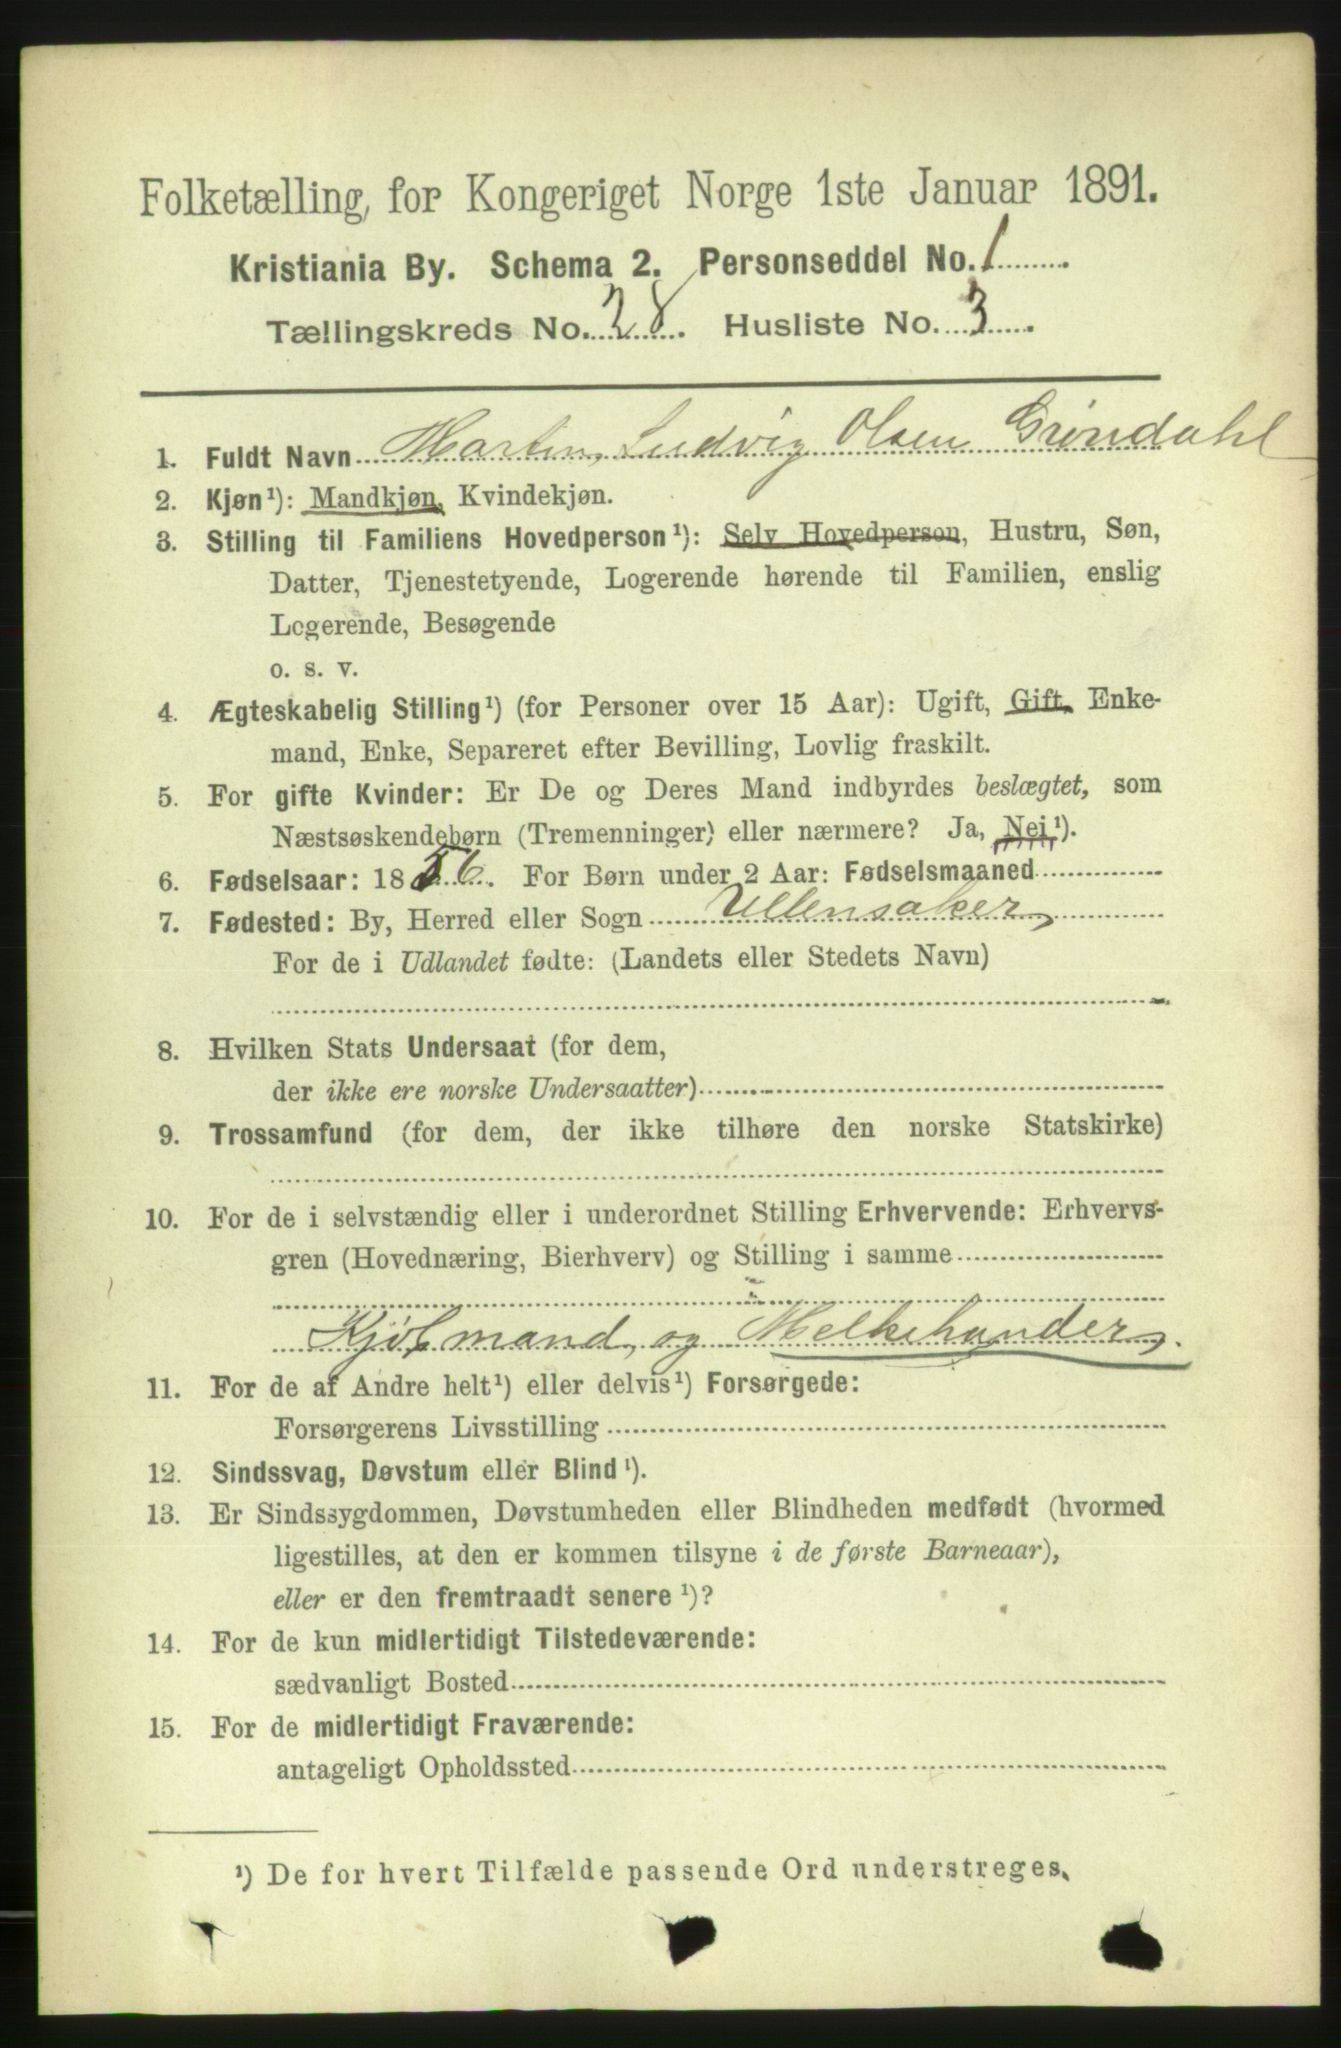 Folketælling for Kongeriget Norge 1ste Januar 1891.
Kristiania By. Schema 2. Personseddel No. 1
Tællingskreds No. 28. Husliste No. 3.
1. Fuldt Navn Martin Ludvig Olsen Grøndahl
2. Kjøn¹): Mandkjøn, Kvindekjøn.
3. Stilling til Familiens Hovedperson¹): Selv Hovedperson, Hustru, Søn,
Datter, Tjenestetyende, Logerende hørende til Familien, enslig
Logerende, Besøgende
o. s. v.
4. Ægteskabelig Stilling¹) (for Personer over 15 Aar): Ugift, Gift, Enke-
mand, Enke, Separeret efter Bevilling, Lovlig fraskilt.
5. For gifte Kvinder: Er De og Deres Mand indbyrdes beslægtet, som
Næstsøskendebørn (Tremenninger) eller nærmere? Ja, Nei¹).
6. Fødselsaar: 1856. For Børn under 2 Aar: Fødselsmaaned
7. Fødested: By, Herred eller Sogn Ullensaker
For de i Udlandet fødte: (Landets eller Stedets Navn)
8. Hvilken Stats Undersaat (for dem,
der ikke ere norske Undersaatter)
9. Trossamfund (for dem, der ikke tilhøre den norske Statskirke)
10. For de i selvstændig eller i underordnet Stilling Erhvervende: Erhvervs-
gren (Hovednæring, Bierhverv) og Stilling i samme
Kjøbmand, og Melkehander.
11. For de af Andre helt¹) eller delvis¹) Forsørgede:
Forsørgerens Livsstilling
12. Sindssvag, Døvstum eller Blind¹).
13. Er Sindssygdommen, Døvstumheden eller Blindheden medfødt (hvormed
ligestilles, at den er kommen tilsyne i de første Barneaar),
eller er den fremtraadt senere¹)?
14. For de kun midlertidigt Tilstedeværende:
sædvanligt Bosted
15. For de midlertidigt Fraværende:
antageligt Opholdssted
¹) De for hvert Tilfælde passende Ord understreges.